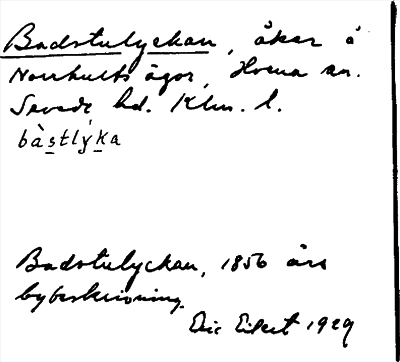 Badstulyckan, åker å
Norrhults ägor, Hvena sn.
Sevede hd. Klm. l.
bàstlýka
Badstulyckan, 1856 års
bybeskrivning.
Eric Elgert 1929